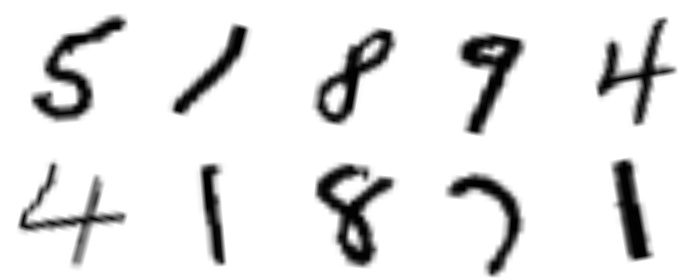 5 1 8 9 4
4 1 8 7 1